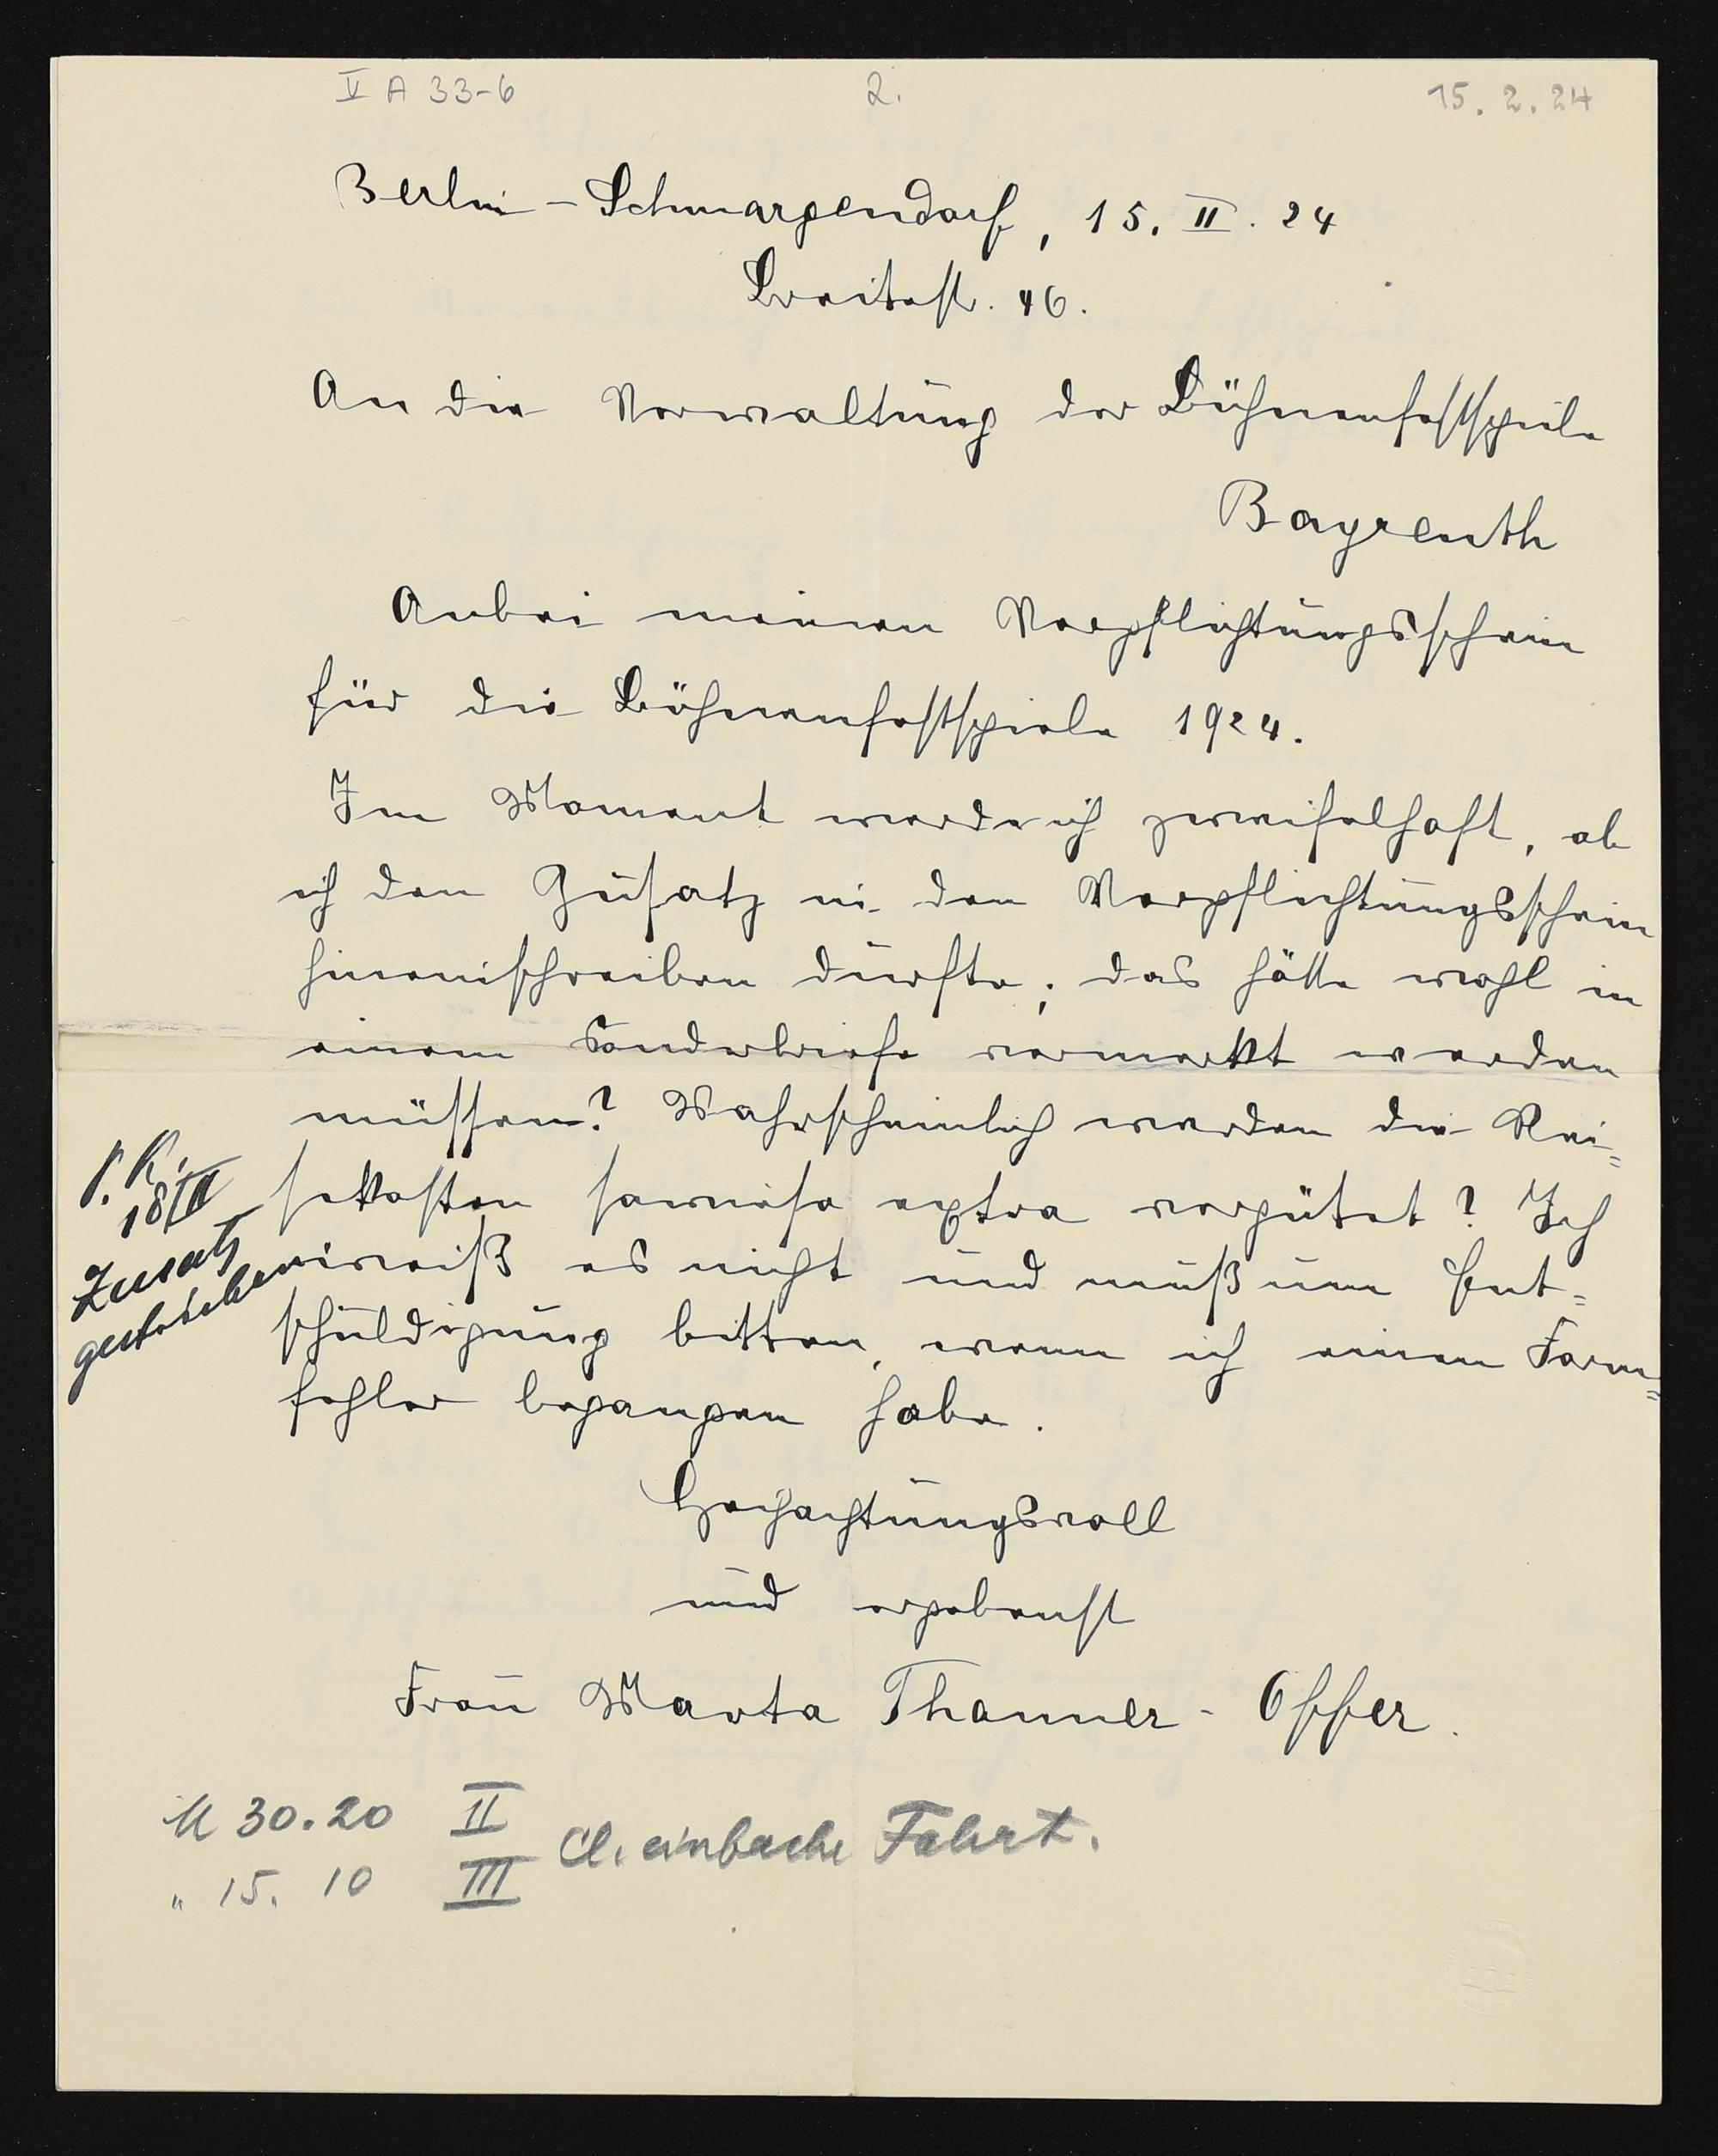 V A 33-6 2. 15. 2. 24
Berlin-Schmargendorf, 15. II. 24
Breitestr. 46.
An die Verwaltung der Bühnenfestspiele
Bayreuth
Anbei meinen Verpflichtungsschein
für die Bühnenfestspiele 1924.
Im Moment werde ich zweifelhaft, ob
ich den Zusatz in den Verpflichtungsschein
hineinschreiben durfte; das hätte wohl in
einem Sonderbriefe vermerkt werden
müssen? Wahrscheinlich werden die Rei=
sekosten sowieso extra vergütet? Ich
weiß es nicht und muß um Ent=
schuldigung bitten, wenn ich einen Form=
fehler begangen habe.
Hochachtungsvoll
und ergebenst
Frau Marta Thanner-Offer.
18/II
Zusatz
gestrichen
M 30.20 II
" 15. 10 III
Cl. einfache Fahrt.